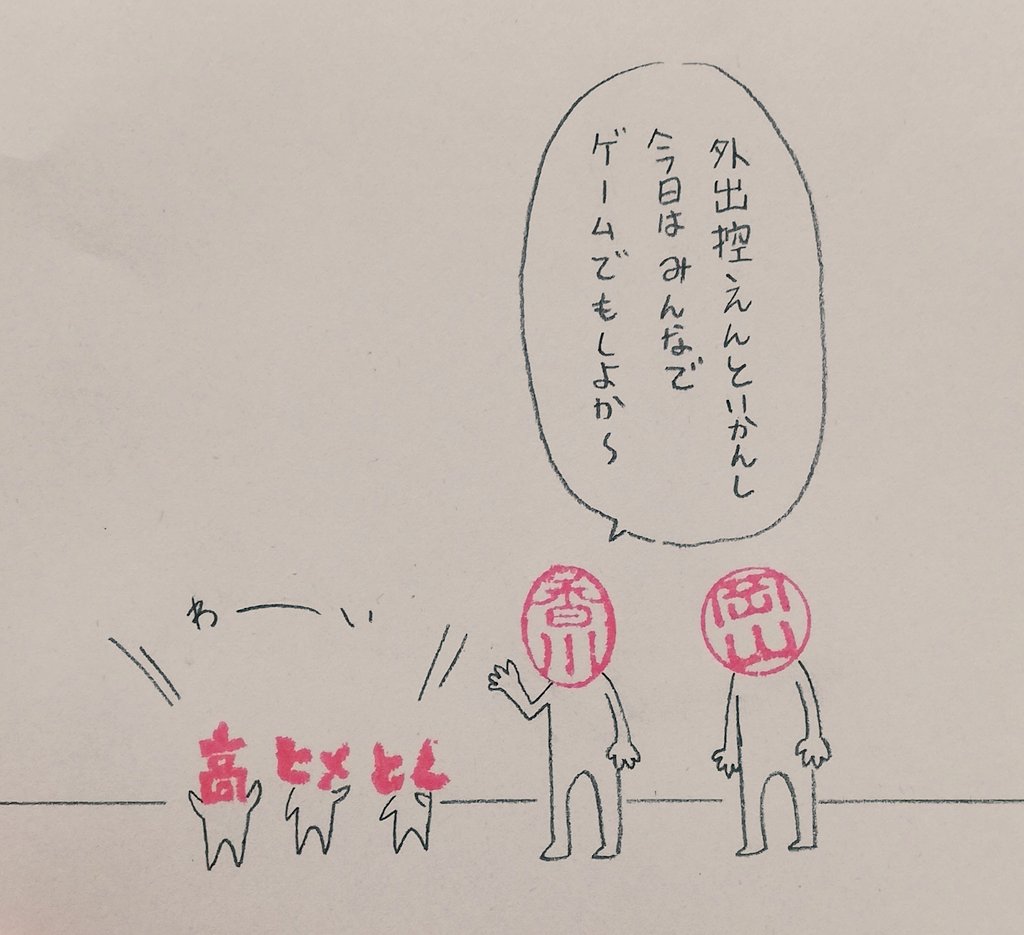 外出控えんといかんし
今日はみんなで
ゲームでもしよか〜
わーい
高
ヒメ
とし
香川
岡山